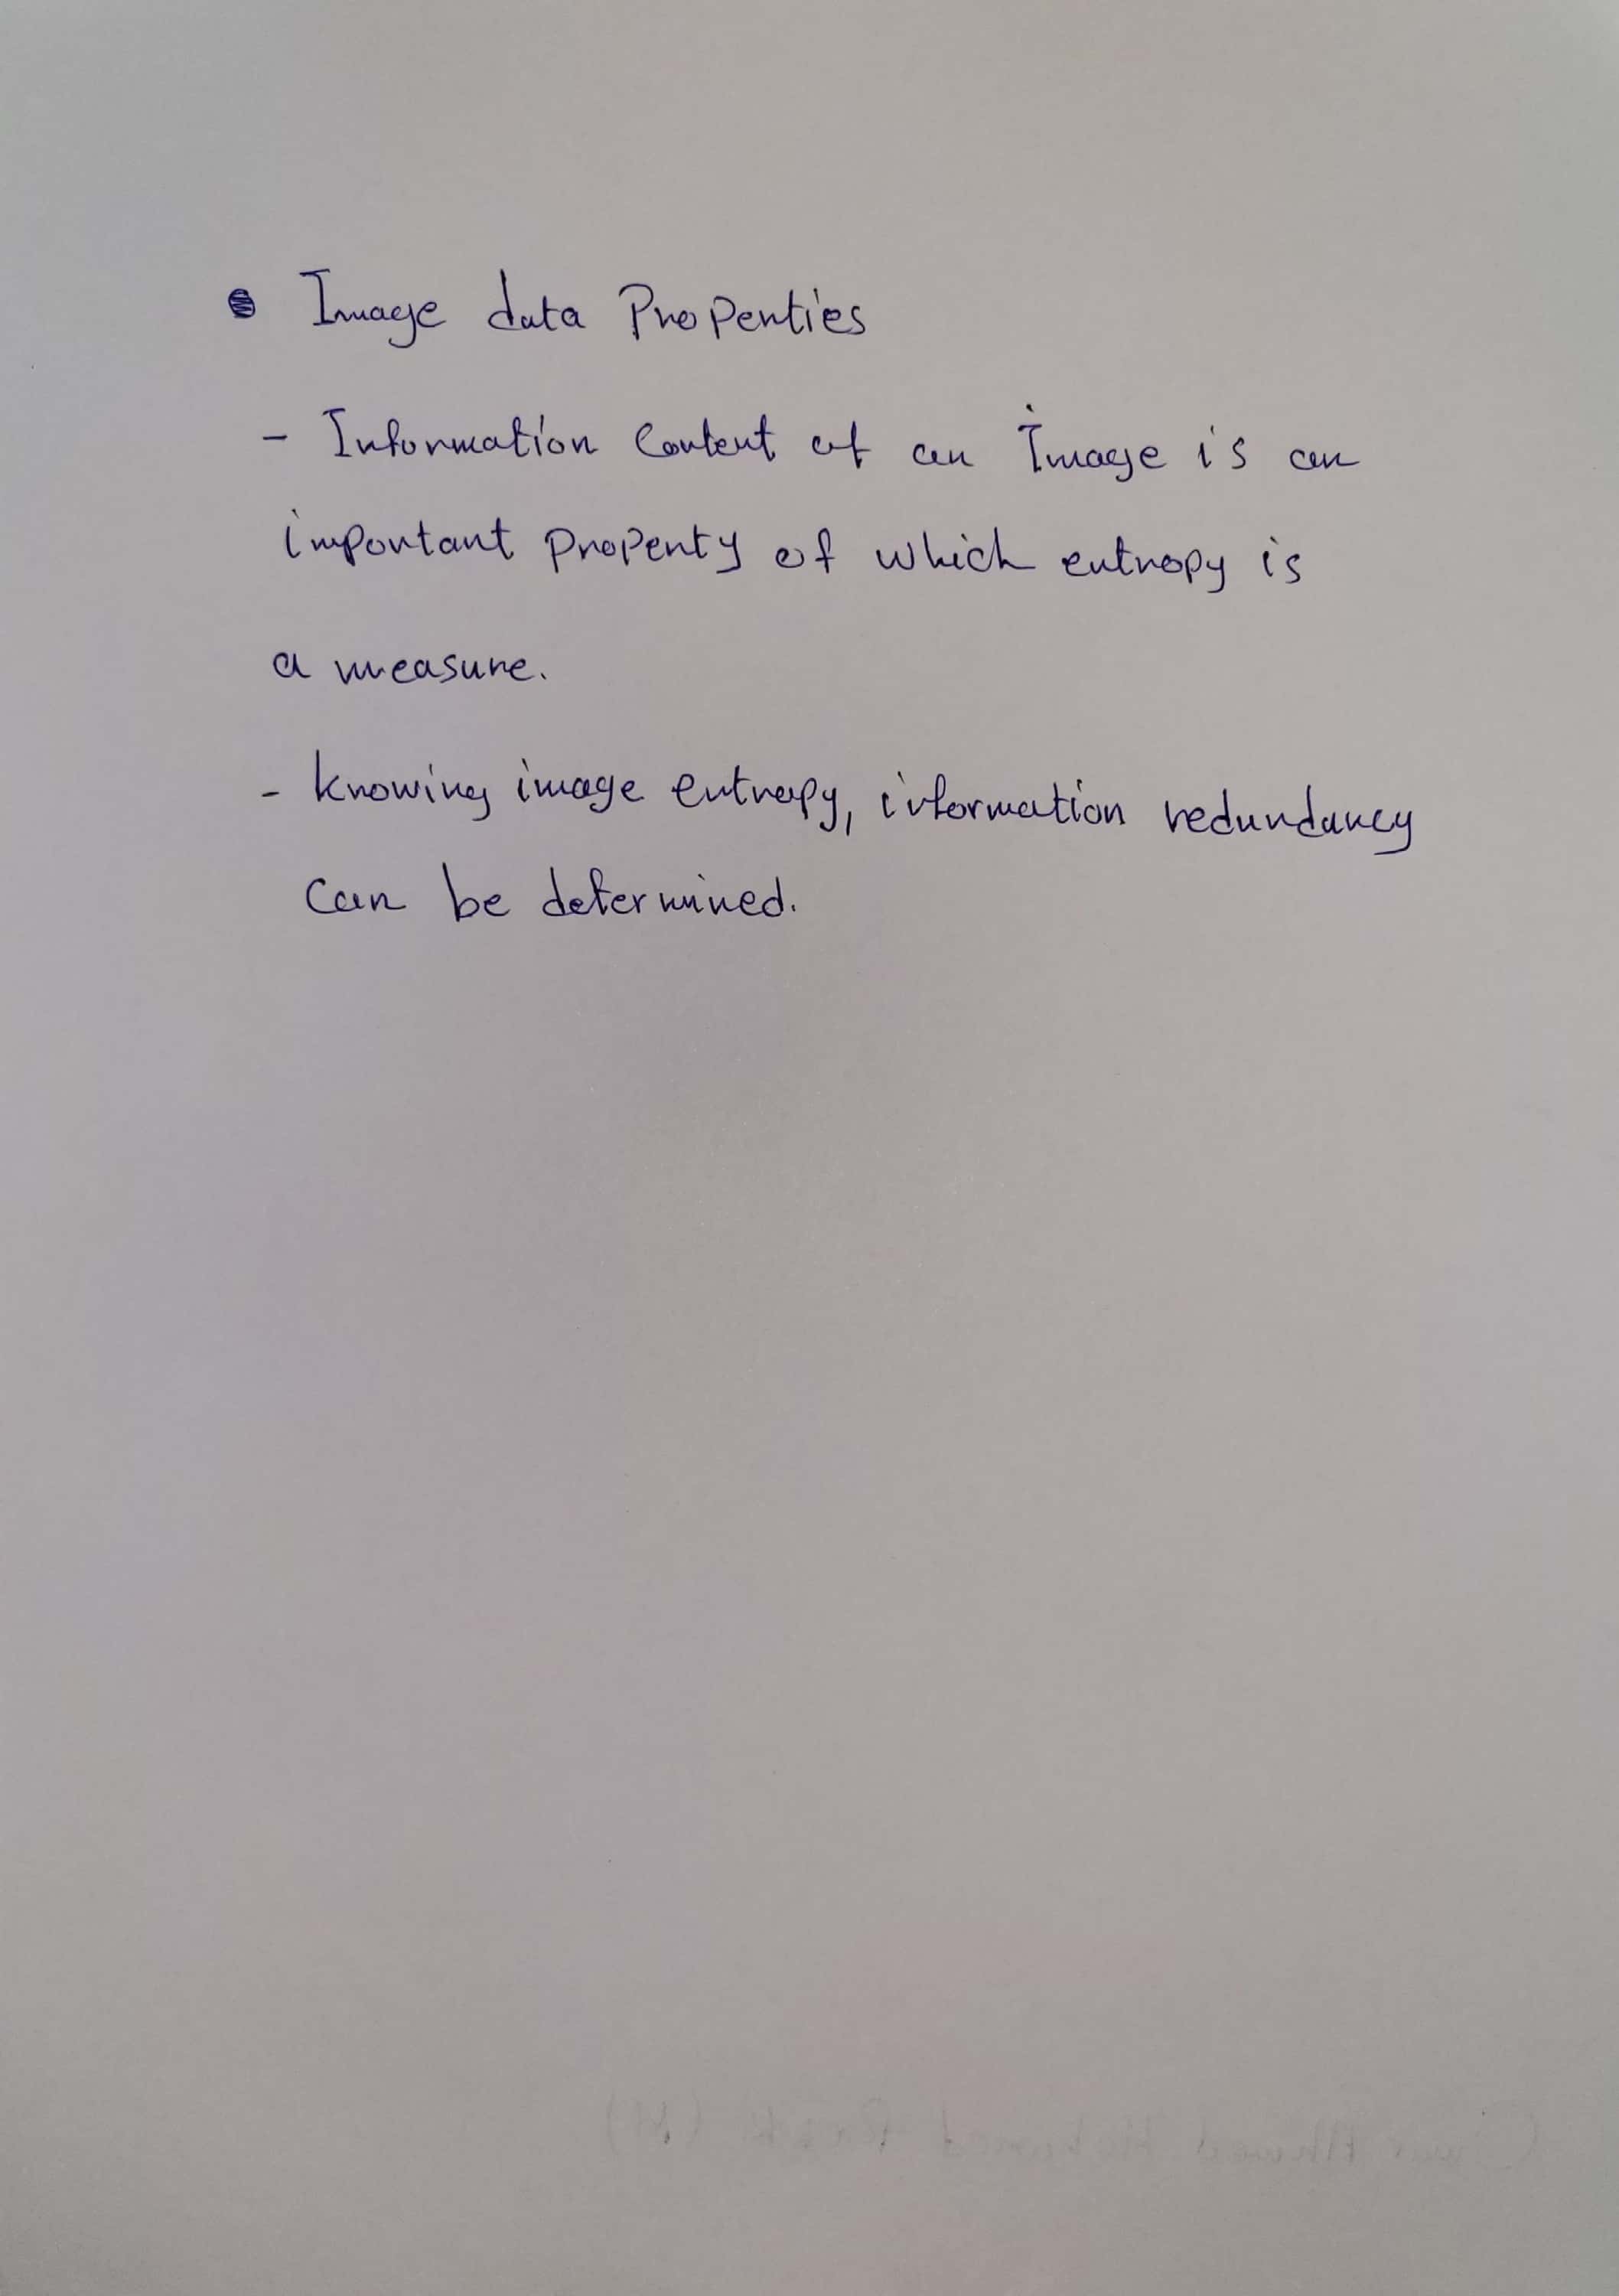 • Image data Properties
- Information Content of an Image is an
important property of which entropy is
a measure.
- knowing image entropy, information redundancy
can be determined.